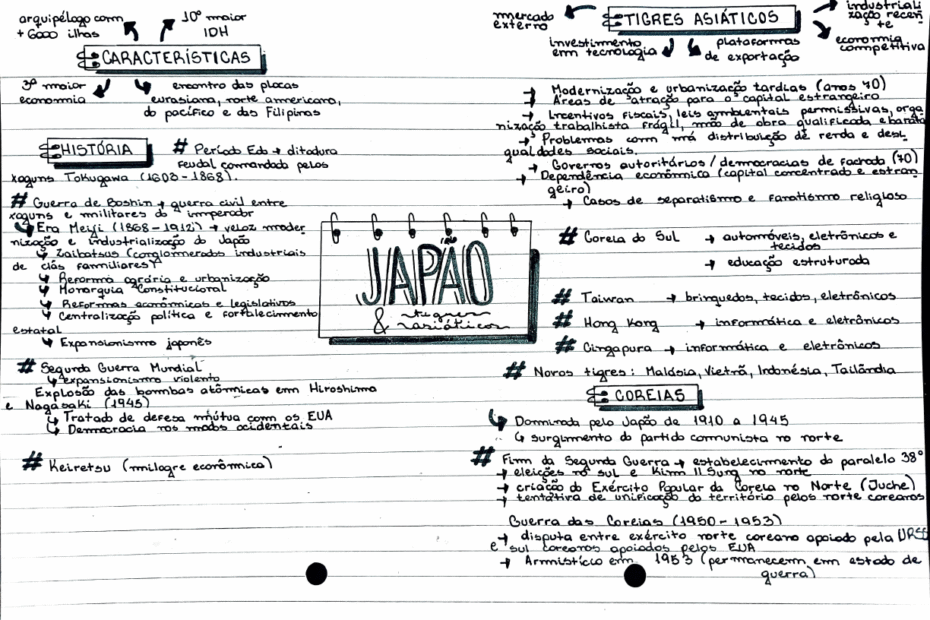 arquipélago com
+ 6000 ilhas
10º maior
IDH
CARACTERÍSTICAS
3º maior
economia
encontro das placas
eurasiana, norte americana,
do pacífico e das Filipinas
HISTÓRIA
# Período Edo → ditadura
feudal comandada pelos
xoguns Tokugawa (1603 - 1868).
# Guerra de Boshin → guerra civil entre
xoguns e militares do imperador
↳ Era Meiji (1868 - 1912) → veloz moder
nização e industrialização do Japão
↳ Zaibatsus (conglomerados industriais
de clãs familiares)
↳ Reforma agrária e urbanização
↳ Monarquia Constitucional
↳ Reformas econômicas e legislativas
↳ Centralização política e fortalecimento
estatal
↳ Expansionismo japonês
# Segunda Guerra Mundial
↳ expansionismo violento
Explosão das bombas atômicas em Hiroshima
e Nagasaki (1945)
↳ Tratado de defesa mútua com os EUA
↳ Democracia nos modos ocidentais
# Keiretsu (milagre econômico)
JAPÃO
& tigres
asiáticos
mercado
externo
TIGRES ASIÁTICOS
industriali
zação recen
te
investimento
em tecnologia
plataformas
de exportação
economia
competitiva
→ Modernização e urbanização tardias (anos 70)
→ Áreas de atração para o capital estrangeiro
→ Incentivos fiscais, leis ambientais permissivas, orga
nização trabalhista frágil, mão de obra qualificada e barata
→ Problemas com má distribuição de renda e desi
gualdades sociais.
→ Governos autoritários / democracias de fachada (70)
→ Dependência econômica (capital concentrado e estran
geiro)
→ Casos de separatismo e fanatismo religioso
# Coreia do Sul → automóveis, eletrônicos e
tecidos
→ educação estruturada
# Taiwan → brinquedos, tecidos, eletrônicos
# Hong Kong → informática e eletrônicos
# Cingapura → informática e eletrônicos
# Novos tigres: Malásia, Vietnã, Indonésia, Tailândia
COREIAS
↳ Dominada pelo Japão de 1910 a 1945
↳ surgimento do partido comunista no norte
# Fim da Segunda Guerra → estabelecimento do paralelo 38º
→ eleições no sul e Kim Il Sung no norte
→ criação do Exército Popular da Coreia no Norte (Juche)
→ tentativa de unificação do território pelos norte coreanos
Guerra das Coreias (1950 - 1953)
→ disputa entre exército norte coreano apoiado pela URSS
e sul coreanos apoiados pelos EUA
→ Armistício em 1953 (permanecem em estado de
guerra)